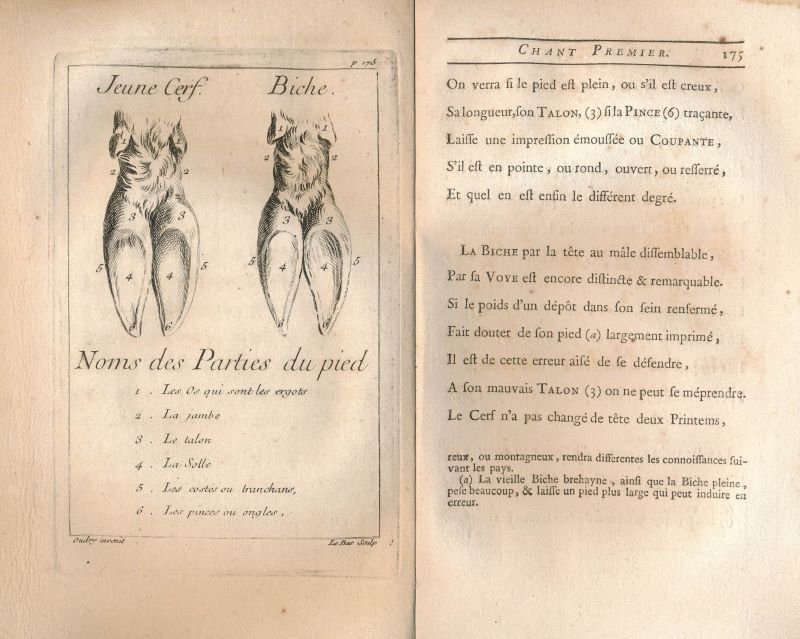 p 175
Jeune Cerf. Biche.
1 1 1 1
2 2 2 2
3 3 3 3
5 4 4 5 5 4 4 5
6 6
Noms des Parties du pied
1 . Les Os qui sont les ergots
2 . La jambe
3 . Le talon
4 . La Solle
5 . Les costés ou tranchans,
6 . Les pinces ou ongles .
Oudry invenit Le Bas Sculp
CHANT PREMIER. 175
On verra ſi le pied eſt plein, ou s'il eſt creux,
Sa longueur, ſon TALON, (3) ſi la PINCE (6) traçante,
Laiſſe une impreſſion émouſſée ou COUPANTE,
S'il eſt en pointe, ou rond, ouvert, ou reſſerré,
Et quel en eſt enfin le différent degré.
LA BICHE par la tête au mâle diſſemblable,
Par ſa VOYE eſt encore diſtincte & remarquable.
Si le poids d'un dépôt dans ſon ſein renfermé,
Fait douter de ſon pied (a) largement imprimé,
Il eſt de cette erreur aiſé de ſe défendre,
A ſon mauvais TALON (3) on ne peut ſe méprendre.
Le Cerf n'a pas changé de tête deux Printems,
reux, ou montagneux, rendra differentes les connoiſſances ſui-
vant les pays.
(a) La vieille Biche brehayne, ainſi que la Biche pleine,
peſe beaucoup, & laiſſe un pied plus large qui peut induire en
erreur.